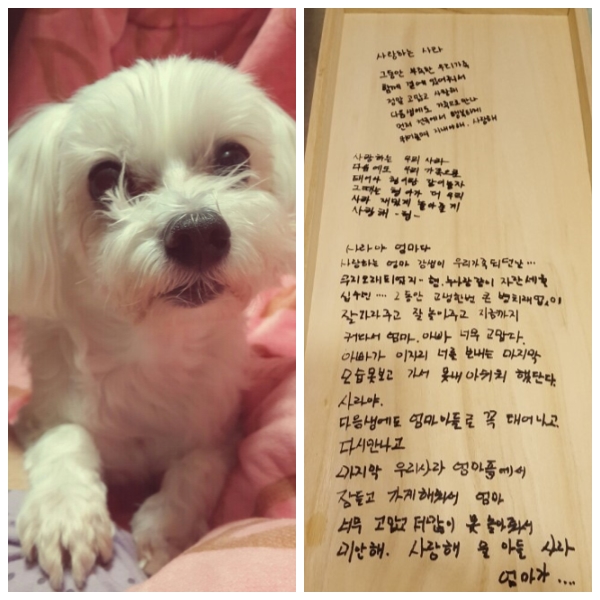 사랑하는 사라
그동안 부족한 우리가족
함께 곁에 있어줘서
정말 고맙고 사랑해
다음생에도 가족으로 만나
먼저 천국에서 행복하게
지내야해. 사랑해
사랑하는 우리 사라
다음에도 우리 가족으로
태어나 형아랑 같이놀자
그때는 형아가 더 우리
사라 재밌게 놀아줄게
사랑해 -형-
사라야 엄마다
사랑하는 엄마 강생이 우리가족되던날...
무지오래되었지- 형.누나랑같이 자란세월
십수년.... 그동안 고생한번 큰 병치레없이
잘자라주고 잘놀아주고 지금까지
커다서 엄마.아빠 너무 고맙다.
아빠가 이자리 너를 보내는 마지막
모습못보고 가서 못내아쉬워 했단다
사라야.
다음생에도 엄마아들로 꼭 태어나고
다시만나고
마지막 우리사라 엄마품에서
잠들고 가게해줘서 엄마
너무 고맙고 더많이 못놀아줘서
미안해. 사랑해 울 아들 사라
엄마가....